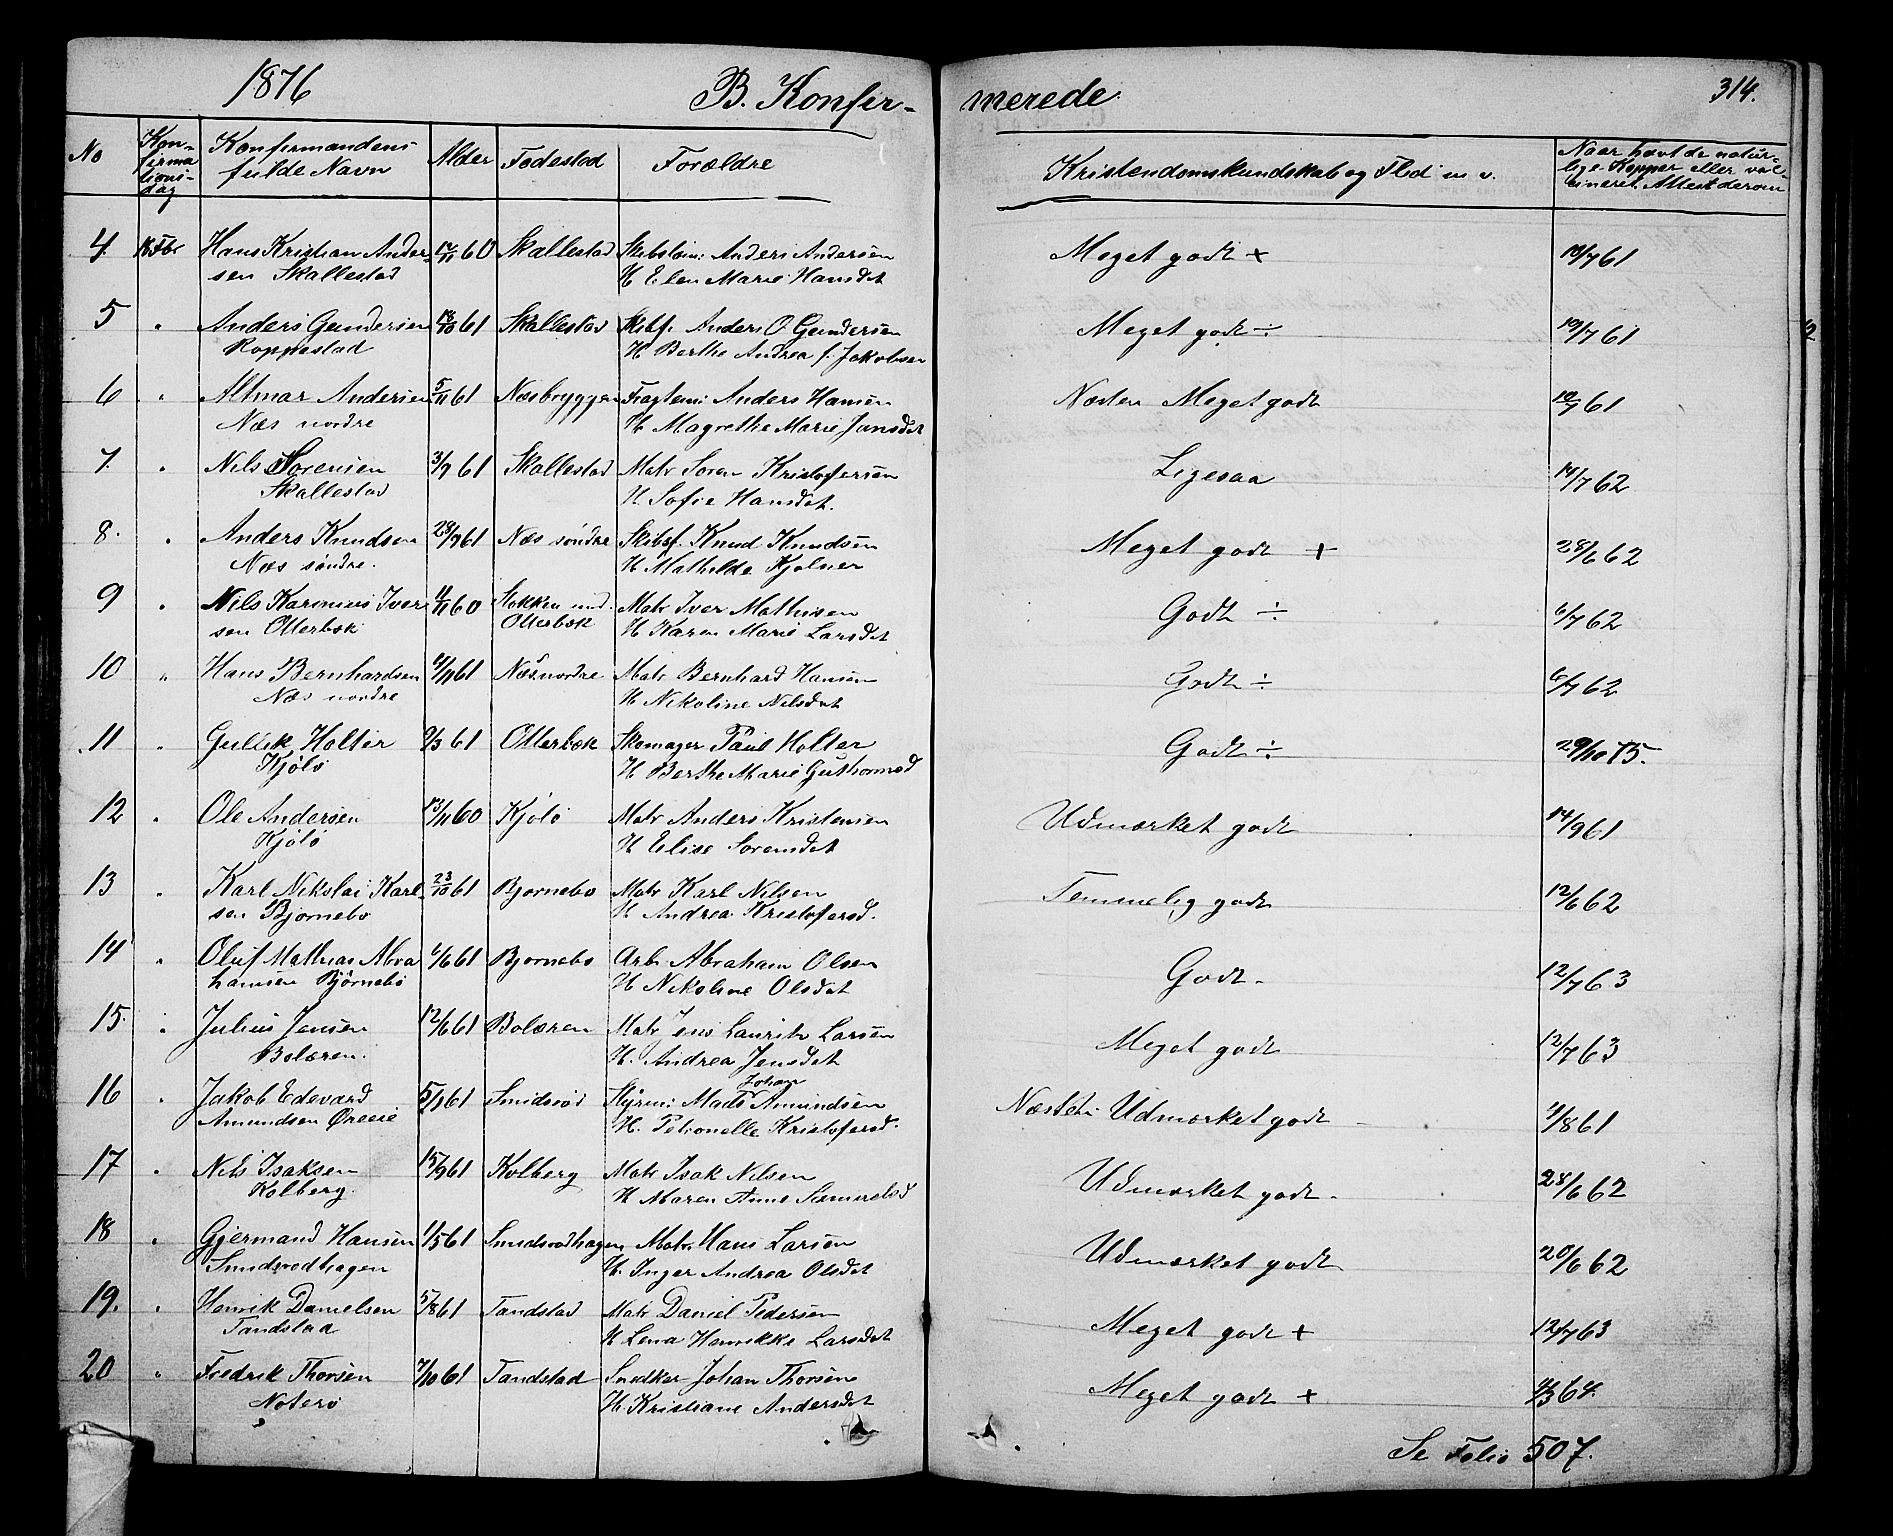 1876 B. Konfir-merede. 314.
No Kon-firma tions-dag Konfirmandens fulde Navn Alder Fødested Forældre Kristendomskundskab og Flid m. v. Naar havt de natur-lige Kopper eller vac-cineret. Attest derom
4. Hans Kristian Ander- 60 Skallestad Anders Andersen Meget godt + 19/7 61
sen Skallestad H Elen Marie Hansdat
5 " Anders Gundersen 61 Skallestad Skibsf. Anders O Gundersen Meget godt ÷ 19/7 61
Roppestad H Berthe Andrea f. Jakobsen
6 " Altmar Andersen 5/11 61 Næsbryggen Anders Hansen Næsten Meget godt 61
Næs nordre H Magrethe Marie Jansdat
7. " Nils Sørensen 3/9 61 Skallestad Matr Søren Kristofersen Ligesaa 14/7 62
Skallestad H Sofie Hansdat.
8. " Anders Knudsen 28/9 61 Næs søndre Skibsf. Knud Knudsen Meget godt + 28/6 62
Næs søndre. H Mathilde Kjølner
9 " Nils Karenius Iver 11/11 60 Stokken und. Matr Iver Mathisen Godt ÷ 6/7 62
sen Otterbæk Otterbæk H Karen Marie Larsdat
10 " Hans Bernhardsen 61 Næs nordre Matr Bernhard Hansen Godt ÷ 6/7 62
Næs nordre H Nikoline Nilsdat
11 " Gullik Holter 9/3 61 Otterbæk Skomager Paul Holter Godt ÷ 29/10 75.
Kjøló H Berthe Marie Guthormsd
12 " Ole Andersen 13/11 60 Kjøló Matr Anders Kristensen Udmærket godt 14/9 61
Kjøló H Elise Sørensdat
13 " Karl Nikolai Karl- 23/10 61 Bjørnebo Matr Karl Nilsen Temmelig godt 12/6 62
sen Bjørnebo H Andrea Kristofersd.
14 " Oluf Mathias Abra 6/6 61 Bjørnebo Arb Abraham Olsen Godt. 12/7 63
hamsen Bjørnebo H Nikoline Olsdat
15. " Julius Jensen 12/6 61 Bolæren Matr Jens Lauritz Larsen Meget godt 12/7 63
Bolæren. H. Andrea Jensdat
16 " Jakob Edevard 61 Smidsrød Styrm: Mads Johan Amundsen Næsten Udmærket godt 61
Amundsen H. Petronelle Kristofersd.
17 " Nils Isaksen 15/9 61 Kolberg Matr Isak Nilsen Udmærket godt. 28/6 62
Kolberg. H Maren Anne Samuelsd
18 " Gjermand Hansen 1/5 61 Smidsrødhagen Matr. Hans Larsen Udmærket godt 20/6 62
Smidsrødhagen H. Inger Andrea Olsdat
19. " Henrik Danielsen 5/8 61 Tandstad Matr Daniel Pedersen Meget godt + 12/7 63
Tandstad H Lena Henrikke Larsdat
20 " Fredrik Thorsen 7/10 61 Tandstad Snedker Johan Thorsen Meget godt + 64.
Nøterø H. Kristiane Andersdat
Se Folio 507.